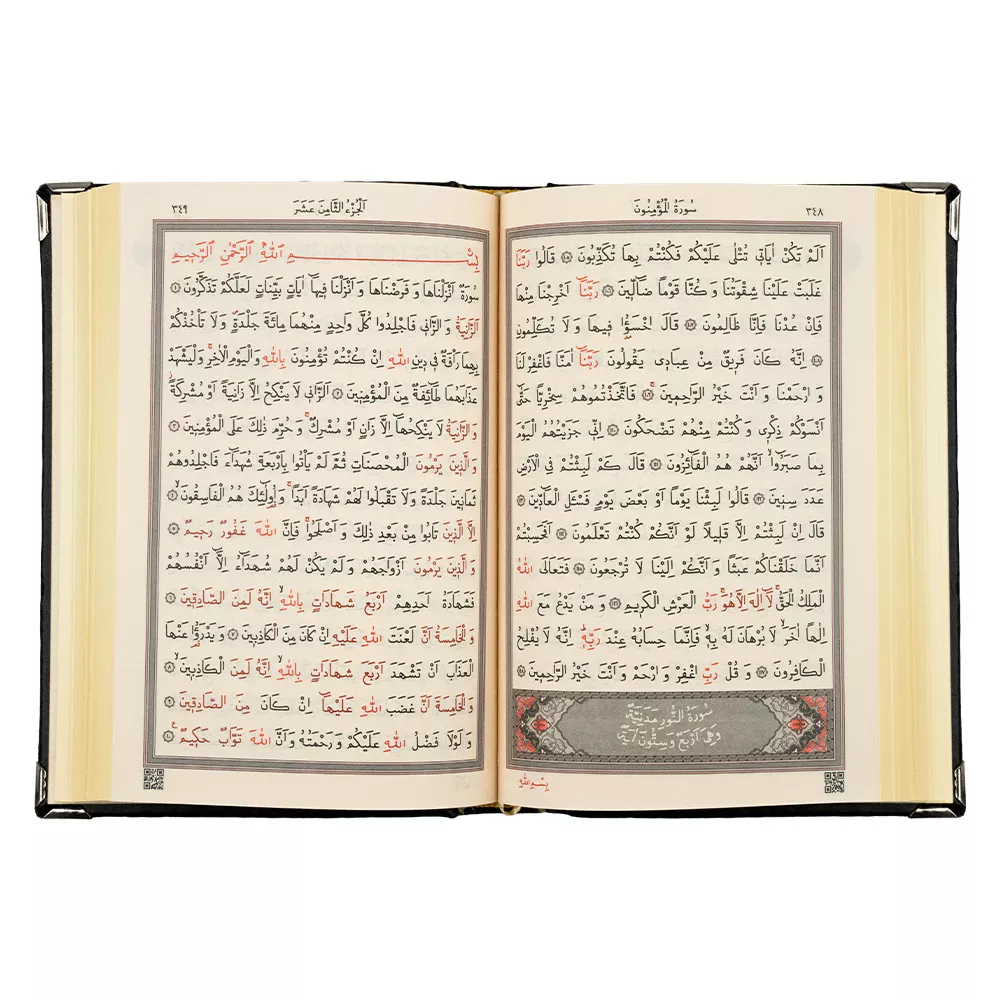 ٣٤٨
سُورَةُ الْمُؤْمِنُونَ
اَلَمْ تَكُنْ اٰيَات۪ي تُتْلٰى عَلَيْكُمْ فَكُنْتُمْ بِهَا تُكَذِّبُونَ ﴿١٠٥﴾ قَالُوا رَبَّنَا
غَلَبَتْ عَلَيْنَا شِقْوَتُنَا وَكُنَّا قَوْمًا ضَٓالّ۪ينَ ﴿١٠٦﴾ رَبَّنَٓا اَخْرِجْنَا مِنْهَا
فَاِنْ عُدْنَا فَاِنَّا ظَالِمُونَ ﴿١٠٧﴾ قَالَ اخْسَؤُ۫ا ف۪يهَا وَلَا تُكَلِّمُونِ
﴿١٠٨﴾ اِنَّهُ كَانَ فَر۪يقٌ مِنْ عِبَاد۪ي يَقُولُونَ رَبَّنَٓا اٰمَنَّا فَاغْفِرْ لَنَا
وَارْحَمْنَا وَاَنْتَ خَيْرُ الرَّاحِم۪ينَ ﴿١٠٩﴾ فَاتَّخَذْتُمُوهُمْ سِخْرِيًّا حَتّٰٓى
اَنْسَوْكُمْ ذِكْر۪ي وَكُنْتُمْ مِنْهُمْ تَضْحَكُونَ ﴿١١٠﴾ اِنّ۪ي جَزَيْتُهُمُ الْيَوْمَ
بِمَا صَبَرُٓوا اَنَّهُمْ هُمُ الْفَٓائِزُونَ ﴿١١١﴾ قَالَ كَمْ لَبِثْتُمْ فِي الْاَرْضِ
عَدَدَ سِن۪ينَ ﴿١١٢﴾ قَالُوا لَبِثْنَا يَوْمًا اَوْ بَعْضَ يَوْمٍ فَسْـَٔلِ الْعَٓادّ۪ينَ ﴿١١٣﴾
قَالَ اِنْ لَبِثْتُمْ اِلَّا قَل۪يلًا لَوْ اَنَّكُمْ كُنْتُمْ تَعْلَمُونَ ﴿١١٤﴾ اَفَحَسِبْتُمْ
اَنَّمَا خَلَقْنَاكُمْ عَبَثًا وَاَنَّكُمْ اِلَيْنَا لَا تُرْجَعُونَ ﴿١١٥﴾ فَتَعَالَى اللّٰهُ
الْمَلِكُ الْحَقُّۚ لَٓا اِلٰهَ اِلَّا هُوَۚ رَبُّ الْعَرْشِ الْكَر۪يمِ ﴿١١٦﴾ وَمَنْ يَدْعُ مَعَ اللّٰهِ
اِلٰهًا اٰخَرَۙ لَا بُرْهَانَ لَهُ بِه۪ۙ فَاِنَّمَا حِسَابُهُ عِنْدَ رَبِّه۪ۜ اِنَّهُ لَا يُفْلِحُ
الْكَافِرُونَ ﴿١١٧﴾ وَقُلْ رَبِّ اغْفِرْ وَارْحَمْ وَاَنْتَ خَيْرُ الرَّاحِم۪ينَ ﴿١١٨﴾
سُورَةُ النُّورِ مَدَنِيَّةٌ
وَهِيَ اَرْبَعٌ وَسِتُّونَ اٰيَةً
بِسْمِ اللّٰهِ
اَلْجُزْءُ الثَّامِنَ عَشَرَ
٣٤٩
بِسْمِ اللّٰهِ الرَّحْمٰنِ الرَّح۪يمِ
سُورَةٌ اَنْزَلْنَاهَا وَفَرَضْنَاهَا وَاَنْزَلْنَا ف۪يهَٓا اٰيَاتٍ بَيِّنَاتٍ لَعَلَّكُمْ تَذَكَّرُونَ ﴿١﴾
اَلزَّانِيَةُ وَالزَّان۪ي فَاجْلِدُوا كُلَّ وَاحِدٍ مِنْهُمَا مِائَةَ جَلْدَةٍۖ وَلَا تَأْخُذْكُمْ
بِهِمَا رَأْفَةٌ ف۪ي د۪ينِ اللّٰهِ اِنْ كُنْتُمْ تُؤْمِنُونَ بِاللّٰهِ وَالْيَوْمِ الْاٰخِرِۚ وَلْيَشْهَدْ
عَذَابَهُمَا طَٓائِفَةٌ مِنَ الْمُؤْمِن۪ينَ ﴿٢﴾ اَلزَّان۪ي لَا يَنْكِحُ اِلَّا زَانِيَةً اَوْ مُشْرِكَةًۘ
وَالزَّانِيَةُ لَا يَنْكِحُهَٓا اِلَّا زَانٍ اَوْ مُشْرِكٌۚ وَحُرِّمَ ذٰلِكَ عَلَى الْمُؤْمِن۪ينَ ﴿٣﴾
وَالَّذ۪ينَ يَرْمُونَ الْمُحْصَنَاتِ ثُمَّ لَمْ يَأْتُوا بِاَرْبَعَةِ شُهَدَٓاءَ فَاجْلِدُوهُمْ
ثَمَان۪ينَ جَلْدَةً وَلَا تَقْبَلُوا لَهُمْ شَهَادَةً اَبَدًاۚ وَاُو۬لٰٓئِكَ هُمُ الْفَاسِقُونَۙ ﴿٤﴾
اِلَّا الَّذ۪ينَ تَابُوا مِنْ بَعْدِ ذٰلِكَ وَاَصْلَحُواۚ فَاِنَّ اللّٰهَ غَفُورٌ رَح۪يمٌ ﴿٥﴾
وَالَّذ۪ينَ يَرْمُونَ اَزْوَاجَهُمْ وَلَمْ يَكُنْ لَهُمْ شُهَدَٓاءُ اِلَّٓا اَنْفُسُهُمْ
فَشَهَادَةُ اَحَدِهِمْ اَرْبَعُ شَهَادَاتٍ بِاللّٰهِۙ اِنَّهُ لَمِنَ الصَّادِق۪ينَ ﴿٦﴾
وَالْخَامِسَةُ اَنَّ لَعْنَتَ اللّٰهِ عَلَيْهِ اِنْ كَانَ مِنَ الْكَاذِب۪ينَ ﴿٧﴾ وَيَدْرَؤُ۬ا عَنْهَا
الْعَذَابَ اَنْ تَشْهَدَ اَرْبَعَ شَهَادَاتٍ بِاللّٰهِۙ اِنَّهُ لَمِنَ الْكَاذِب۪ينَۙ ﴿٨﴾
وَالْخَامِسَةَ اَنَّ غَضَبَ اللّٰهِ عَلَيْهَٓا اِنْ كَانَ مِنَ الصَّادِق۪ينَ ﴿٩﴾
وَلَوْلَا فَضْلُ اللّٰهِ عَلَيْكُمْ وَرَحْمَتُهُ وَاَنَّ اللّٰهَ تَوَّابٌ حَك۪يمٌ۟ ﴿١٠﴾